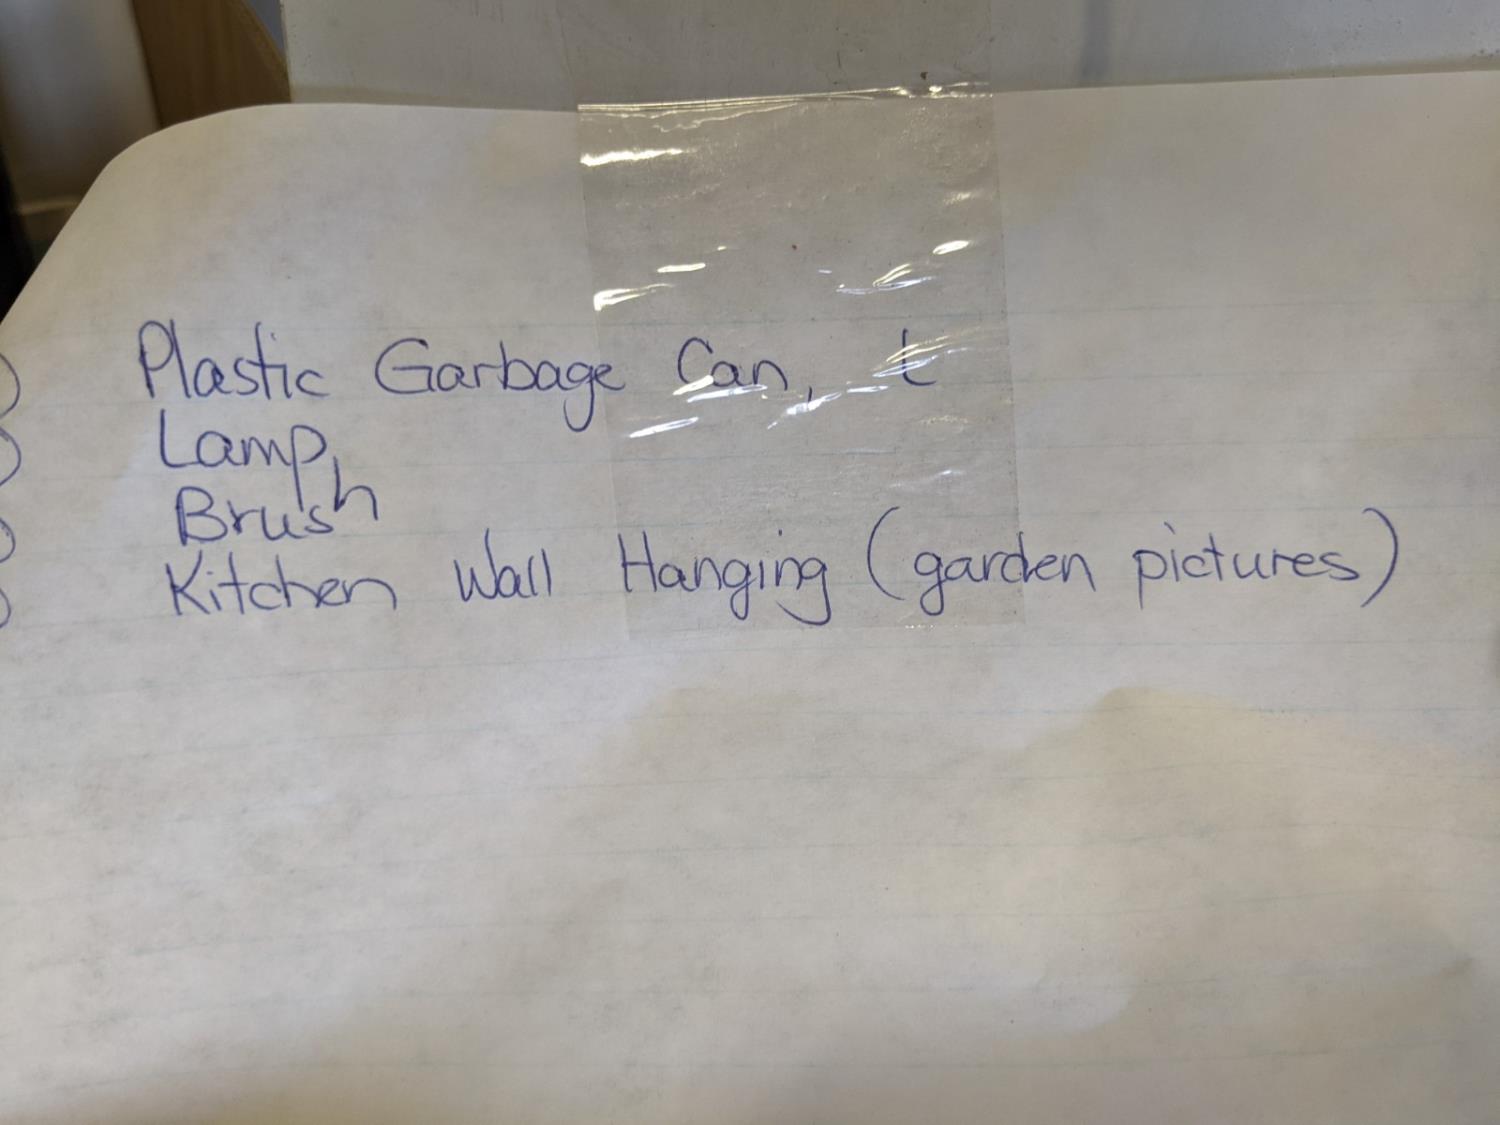 Plastic Garbage Can, t
Lamp,
Brush
Kitchen Wall Hanging (garden pictures)